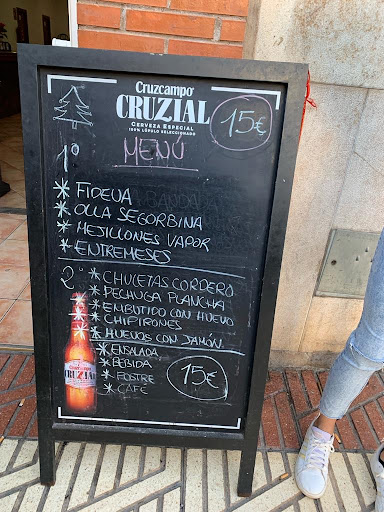 Cruzcampo
CRUZIAL
CERVEZA ESPECIAL
100% LÚPULO SELECCIONADO
15€
MENÚ
1º
* FIDEUA
* OLLA SEGORBINA
* MEJILLONES VAPOR
* ENTREMESES
2º * CHULETAS CORDERO
* PECHUGA PLANCHA
* EMBUTIDO CON HUEVO
* CHIPIRONES
* HUEVOS CON JAMÓN
* ENSALADA
* BEBIDA
* POSTRE
* CAFE
15€
Cruzcampo
CRUZIAL